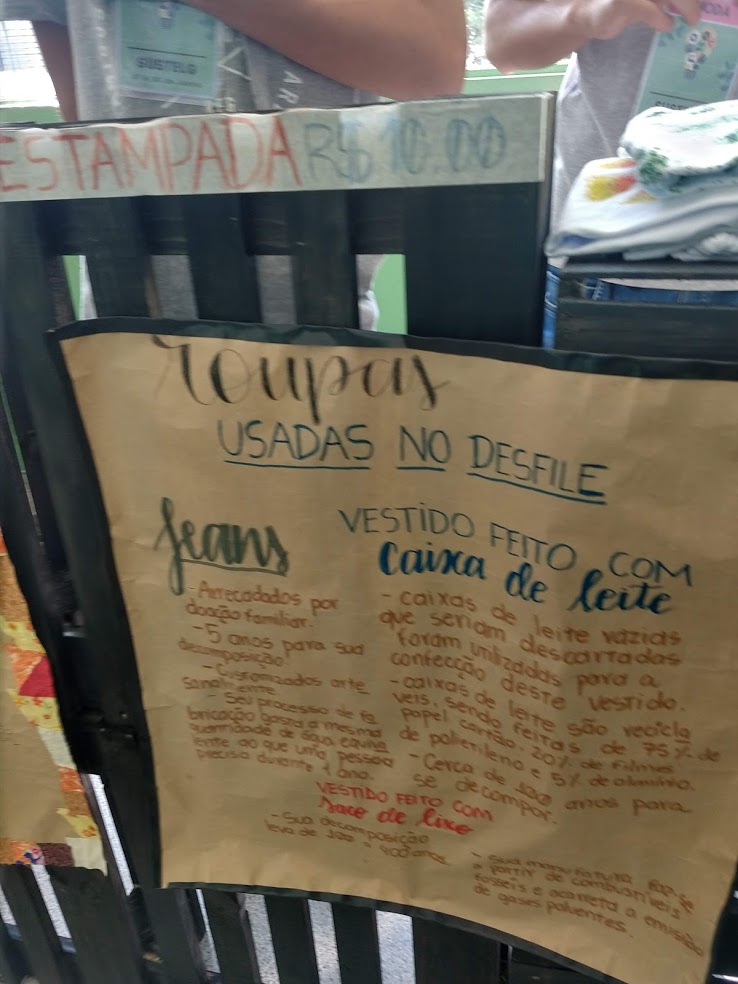 SUSTELO
MODA
ESTAMPADA R$ 10.00
roupas
USADAS NO DESFILE
Jeans
- Arrecadados por
doação familiar.
- 5 anos para sua
decomposição
- Customizados arte
sanalmente
- Seu processo de fa
bricação gasta a mesma
quantidade de água equiva
lente ao que uma pessoa
precisa durante 1 ano.
VESTIDO FEITO COM
caixa de leite
- caixas de leite vazias
que seriam descartadas
foram utilizadas para a
confecção deste vestido.
- caixas de leite são reciclá
veis, sendo feitas de 75% de
papel cartão, 20% de filmes
de polietileno e 5% de alumínio.
- Cerca de 100 anos para
se decompor.
VESTIDO FEITO COM
saco de lixo
- Sua decomposição
leva de 100 a 400 anos.
- Sua manufatura faz-se
a partir de combustíveis
fósseis e acarreta a emissão
de gases poluentes.